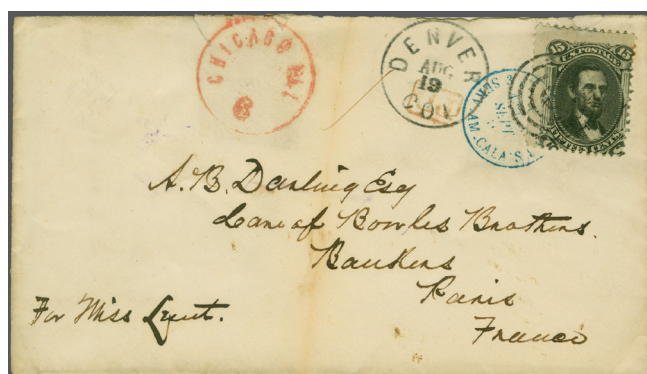 CHICAGO ILL
DENVER
AUG
19
COL
SEPT
AM. CALAIS
15 U.S. POSTAGE 15
A. B. Darling Esq
Care of Bowles Brothers.
Bankers
Paris
France
For Miss Lunt.